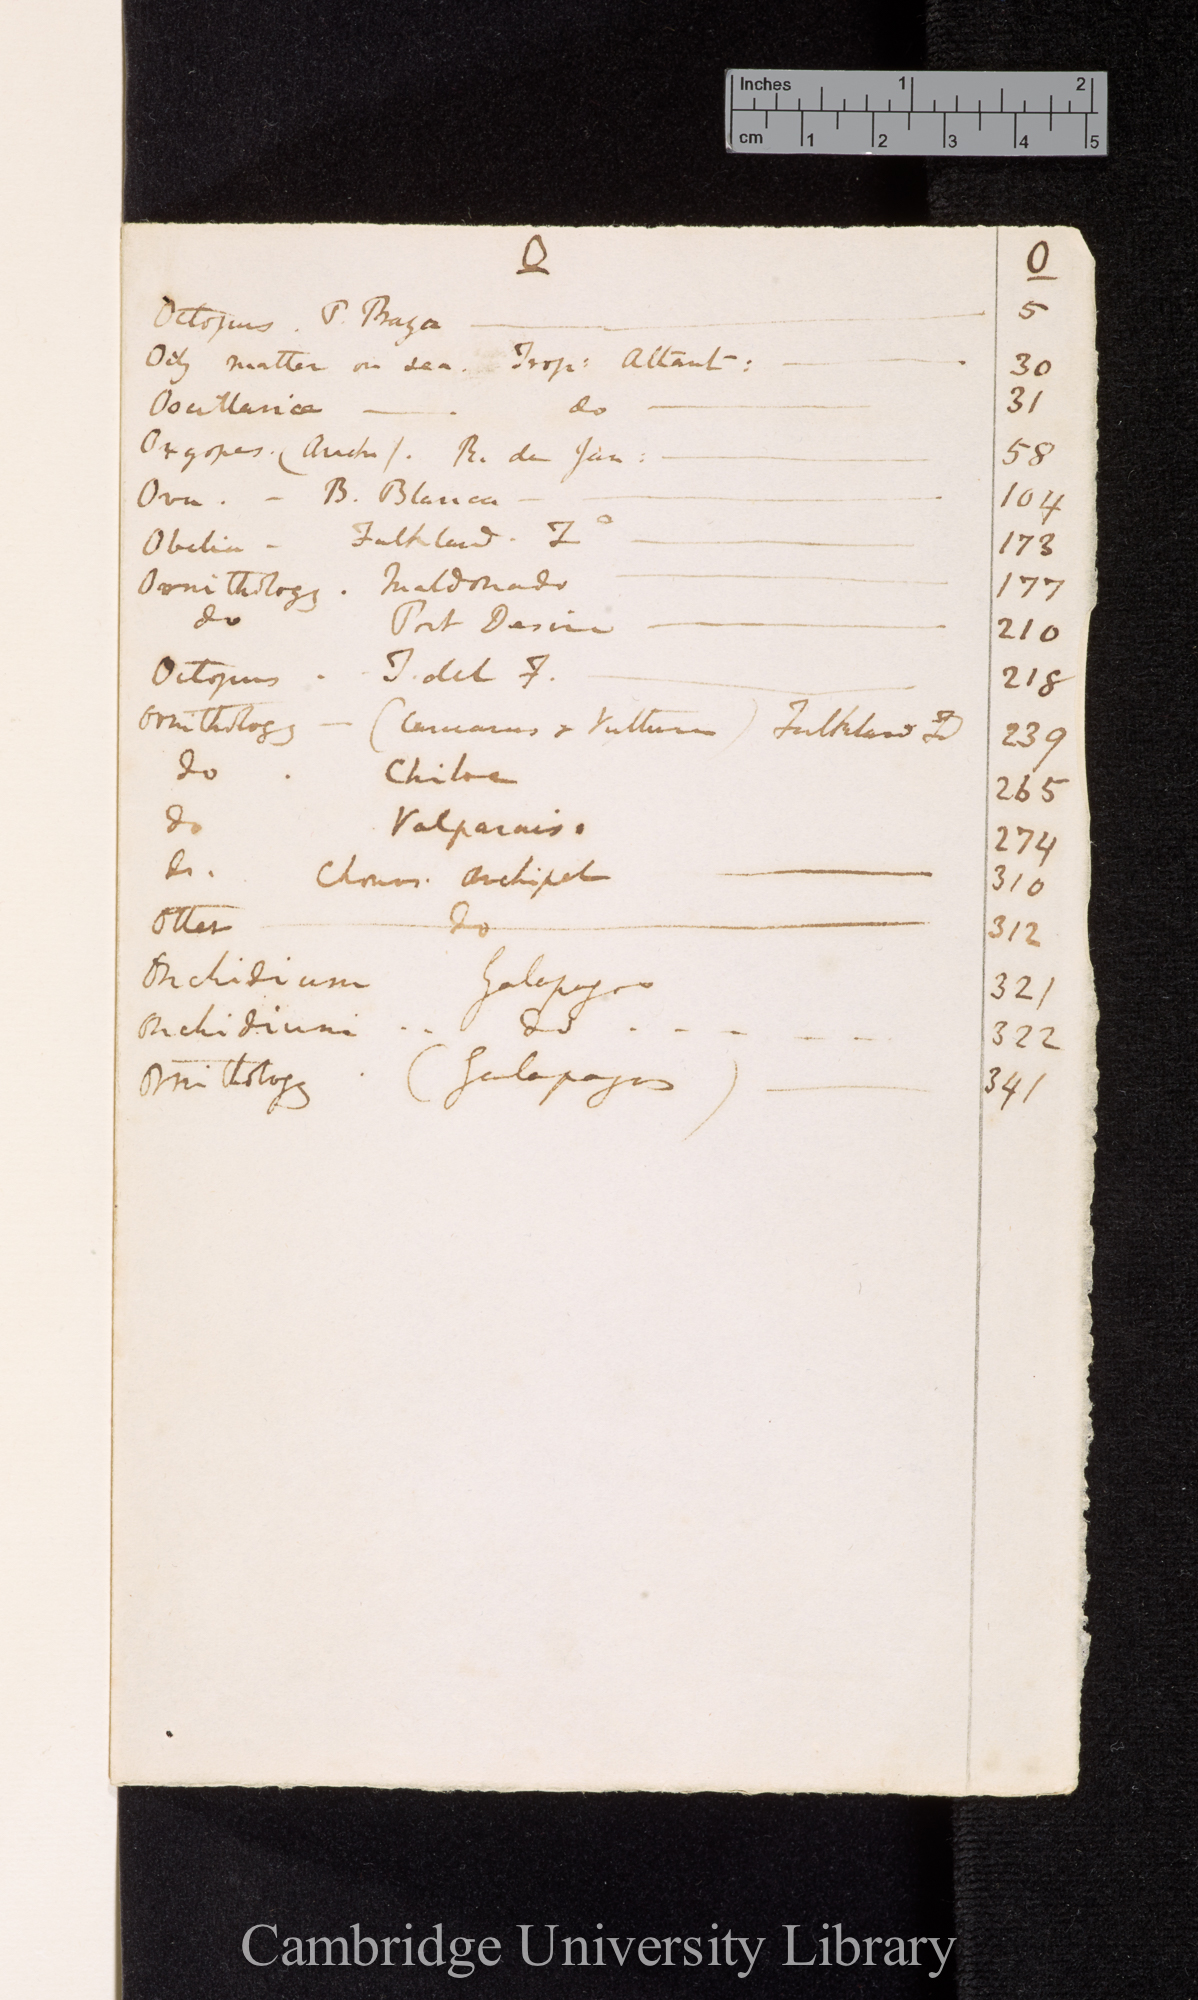 Inches 1 2
cm 1 2 3 4 5
O O
Octopus . P. Praya 5
Oily matter on sea. Trop: Atlant: 30
Oscillariae do 31
Oxyopes. (Arach). R. de Jan: 58
Ova . - B. Blanca - 104
Obelia - Falkland. Is 173
Ornithology . Maldonado 177
do Port Desire 210
Octopus . T. del F. 218
Ornithology - (Caracaras & Vultures) Falkland Is 239
do . Chiloe 265
do Valparaiso 274
do. Chonos. Archipel 310
Otter do 312
Onchidium Galapagos 321
Onchidium .. do . - - - - - 322
Ornithology . (Galapagos) 341
Cambridge University Library